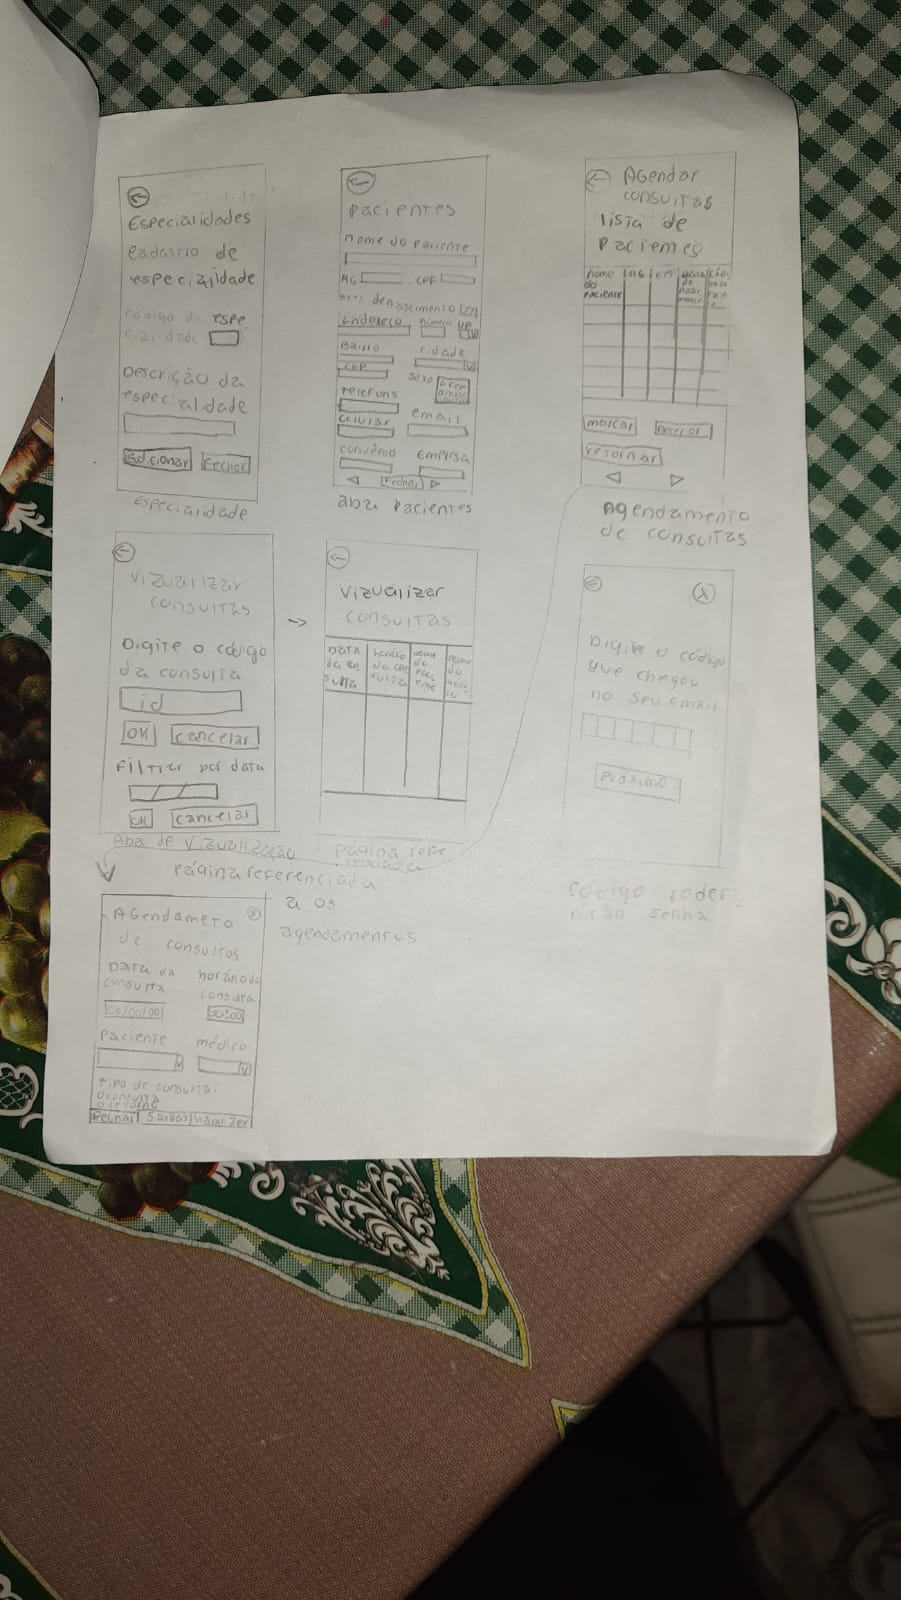 Especialidades
Cadastro de
especialidade
código da espe
cialidade
Descrição da
especialidade
Adicionar Fechar
Especialidade
Pacientes
nome do paciente
RG CPF
Data de nascimento
Endereço número UF
Bairro cidade
CEP
sexo
Telefone
email
celular
convênio Empresa
Fechar
aba Pacientes
Agendar
consultas
lista de
Pacientes
nome
do
Paciente
marcar Anterior
retornar
Agendamento
de consultas
Vizualizar
consultas
Digite o código
da consulta
id
OK cancelar
Filtrar por data
OK cancelar
Aba de Vizualização
Vizualizar
consultas
Data
da con
sulta
horário
da con
sulta
nome
do
paci
ente
nome
do
Página refe
renciada
X
Digite o código
que chegou
no seu email
Próximo
código
senha
Página referenciada
a os
agendamentos
Agendameto X
de consultas
Data da
consulta
horário da
consulta
00/00/00 00:00
Paciente médico
tipo de consulta:
consulta
retorno
Fechar Salvar